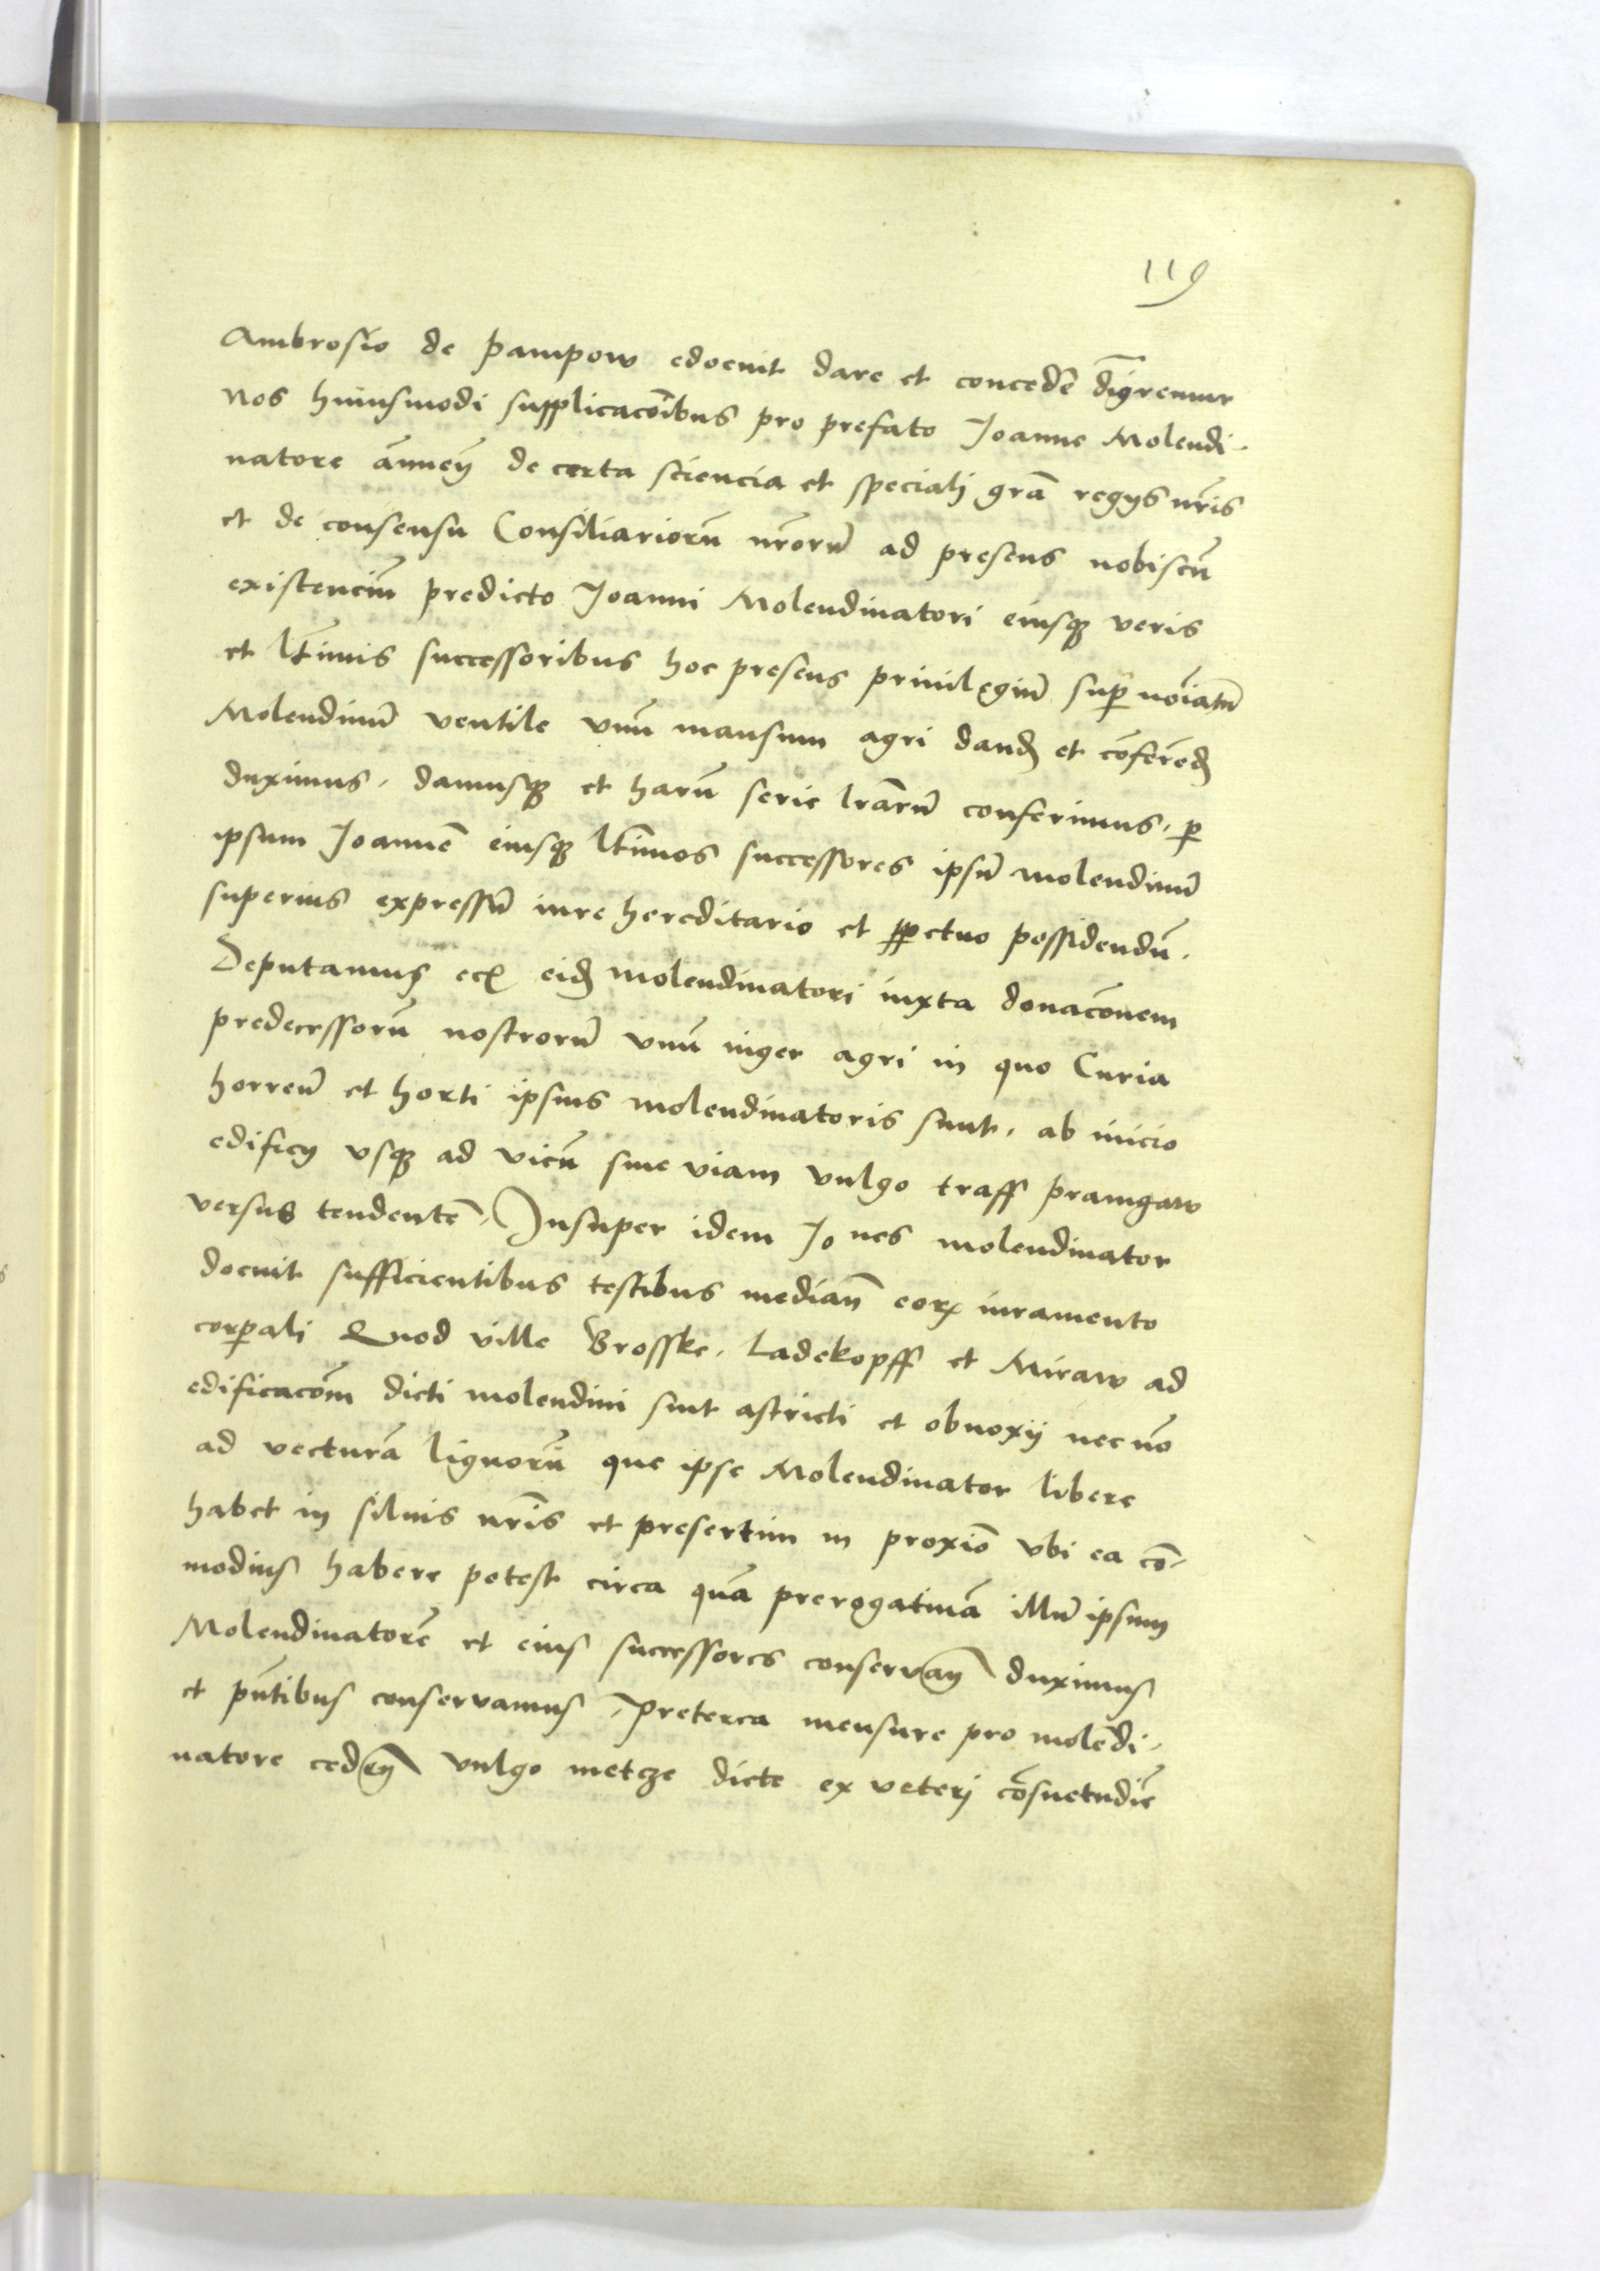 119
Ambrosio de Pampow edocuit dare et concedē dignremur
Nos huiusmodi supplicacōibus pro prefato Joanne Molendi-
natore annuen̄ de certa sciencia et speciali grā regys nr̄is
et de consensu Consiliariorū nr̄orū ad presens nobiscū
existenciū predicto Joanni Molendinatori eiusq veris
et ltīmis successoribus hoc presens priuilegiū sup̄ noīatū
Molendinū ventile vnū mansum agri dand et cōferēd
duximus. damusq et harū serie lr̄arū conferimus. p
ipsum Joannē eiusq ltīmos successores ipsū molendinū
superius expressū iure hereditario et ppetuo possidendū.
Deputamus eciā eid Molendinatori iuxta donacōnem
predecessorū nostrorū vnū iuger agri in quo Curia
horreū et horti ipsius molendinatoris sunt. ab inicio
edificy vsq ad vicū siue viam vulgo traff Pramgaw
versus tendentē. Insuper idem Jo nes molendinator
docuit sufficientibus testibus median̄ eorꝝ iuramento
corpali Quod ville Brosske. Ladekopff et Miraw ad
edificacōm dicti molendini sint astricti et obnoxij nec nō
ad vecturā lignorū que ipse Molendinator libere
habet in siluis nr̄is et presertim in proxīo vbi ea cō-
modius habere potest circa quā prerogatiuā illū ipsum
Molendinatorē et eius successores conservan̄ duximus
et pn̄tibus conservamus. Preterea mensure pro molēdi-
natore ceden̄ vulgo metcze dicte ex veteri cōsuetudīe